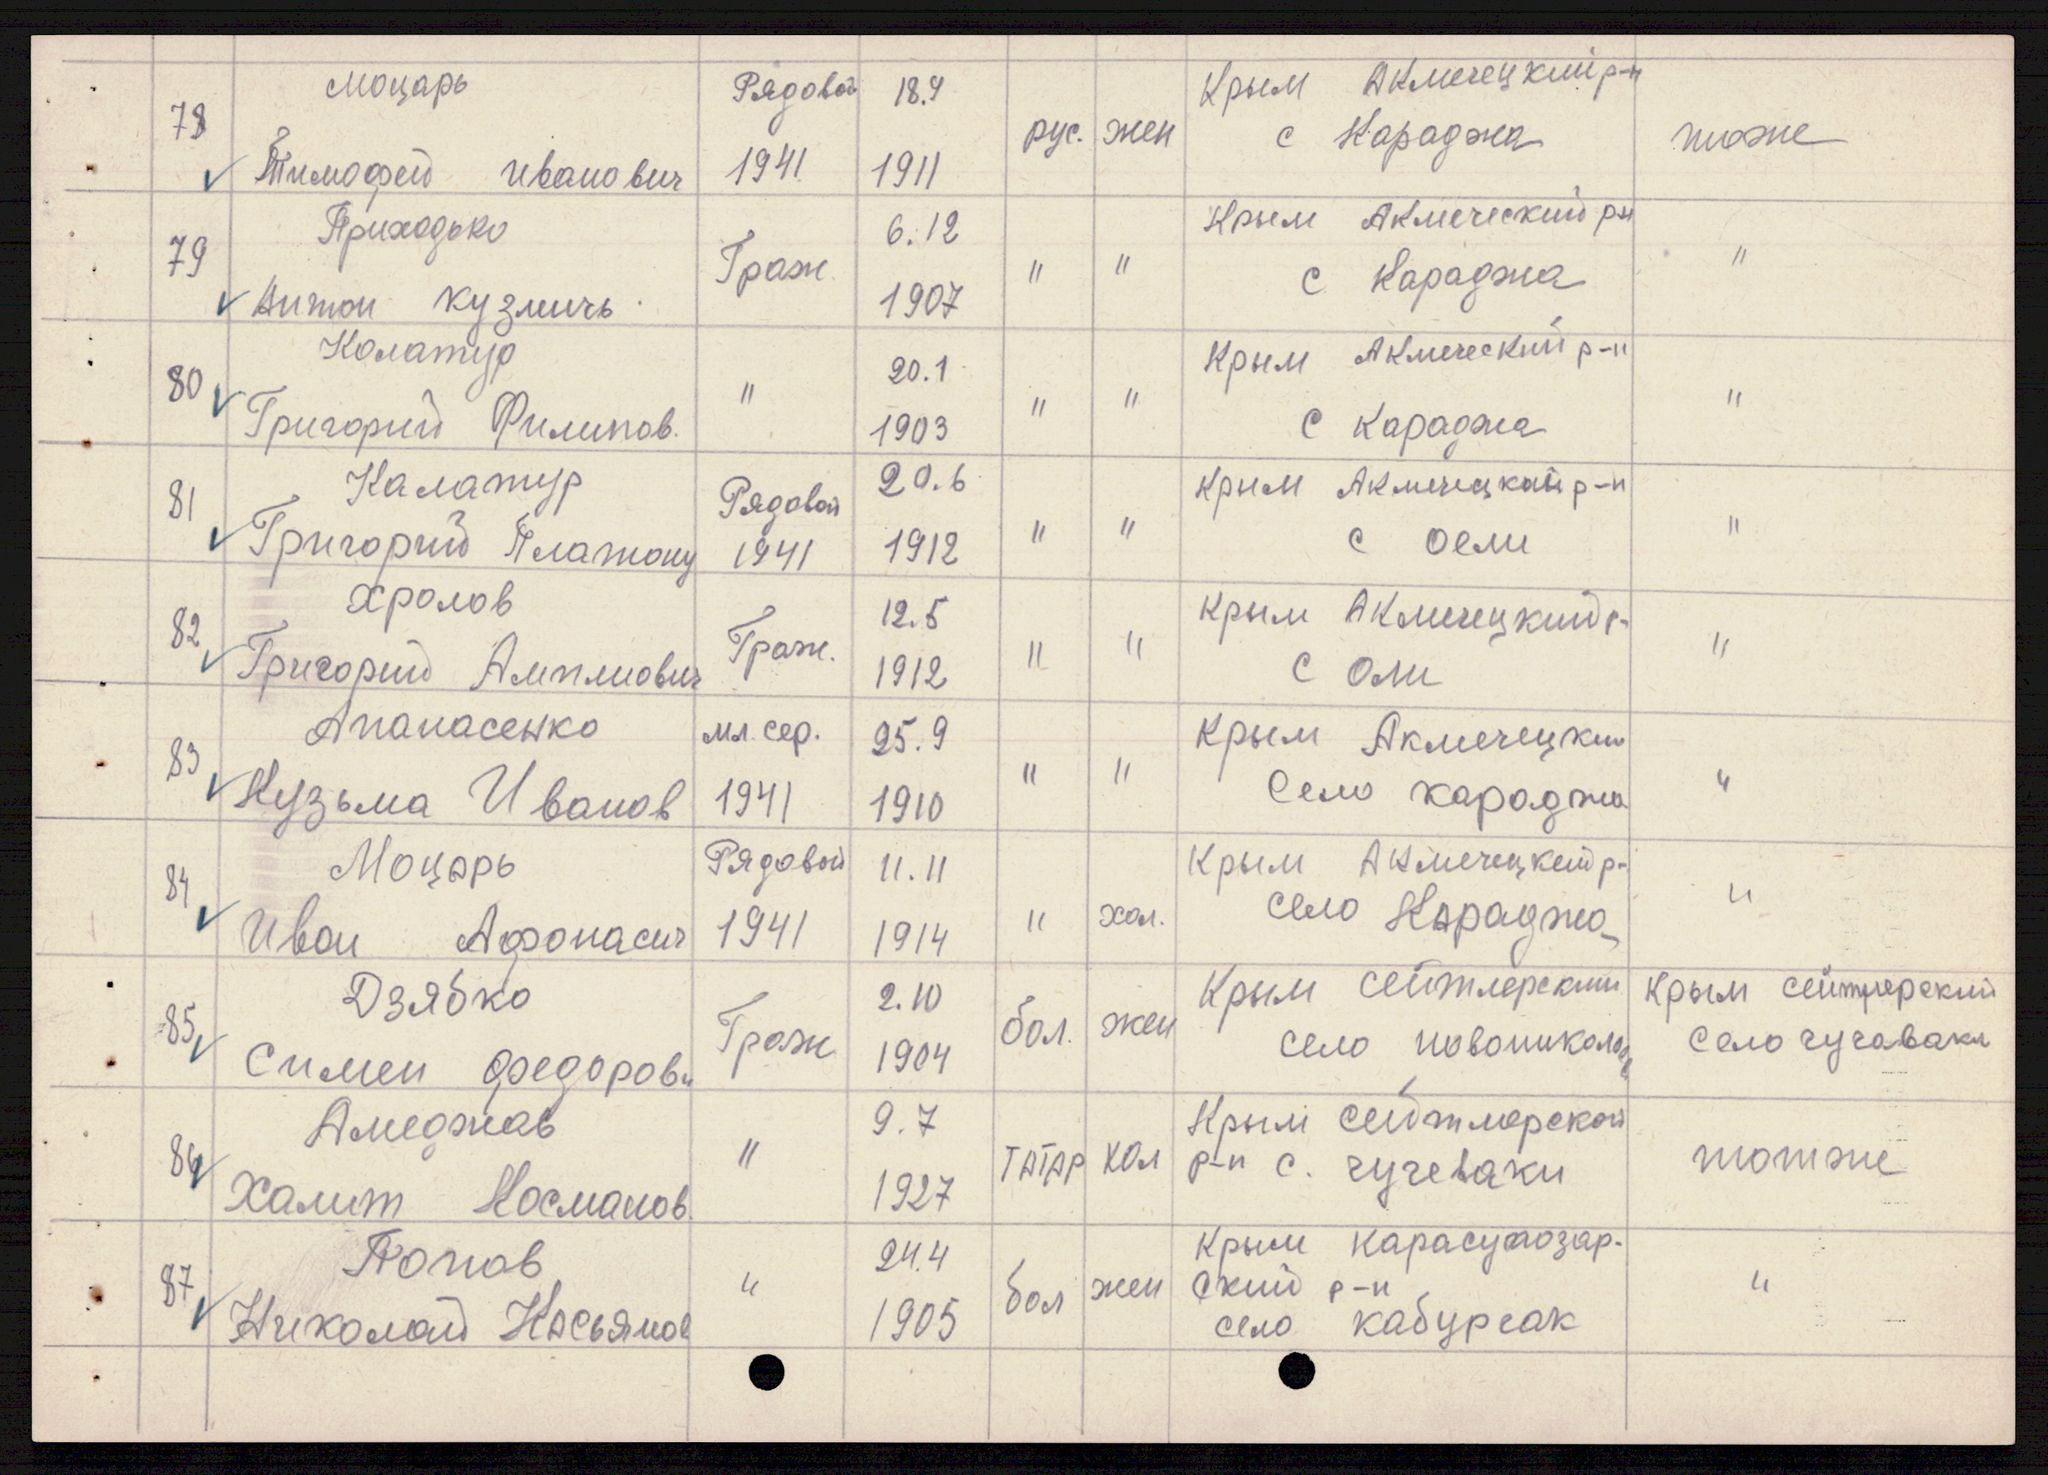 78 Моцарь Рядовой 18.9 рус. жен Крым Акмечецкий р-н тоже
Тимофей Иванович 1941 1911 с Караджа
79 Приходько Граж. 6.12 " " Крым Акмеческий рн "
Антон Кузмичь 1907 с Караджа
80 Колатур " 20.1 " " Крым Акмеческий р-н "
Григорий Филипов. 1903 с Караджа
81 Калатур Рядовой 20.6 " " Крым Акмечецкий р-н "
Григорий Платону 1941 1912 с оели
82 Хролов Граж. 12.5 " " Крым Акмечецкий р- "
Григорий 1912 с Оли
83 Апанасенко мл. сер. 25.9 " " Крым Акмечецкий "
Кузьма Иванов 1941 1910 Село Караджа
84 Моцарь Рядовой 11.11 " хол. Крым Акмечецкий р- "
Иван Афонасич 1941 1914 село Караджа
85 Дзябко Граж 2.10 бол. жен Крым Сейтлерский Крым Сейтлерский
Симен Федоров 1904 село Село чучаваки
86 Амеджав " 9.7 татар хол Крым Сейтлерской тотже
Халит Косманов. 1927 р-н с. чучеваки
87 Попов " 24.4 бол жен Крым Карасубозар- "
Николай Касьянов 1905 ский р-н
село Кабурчак